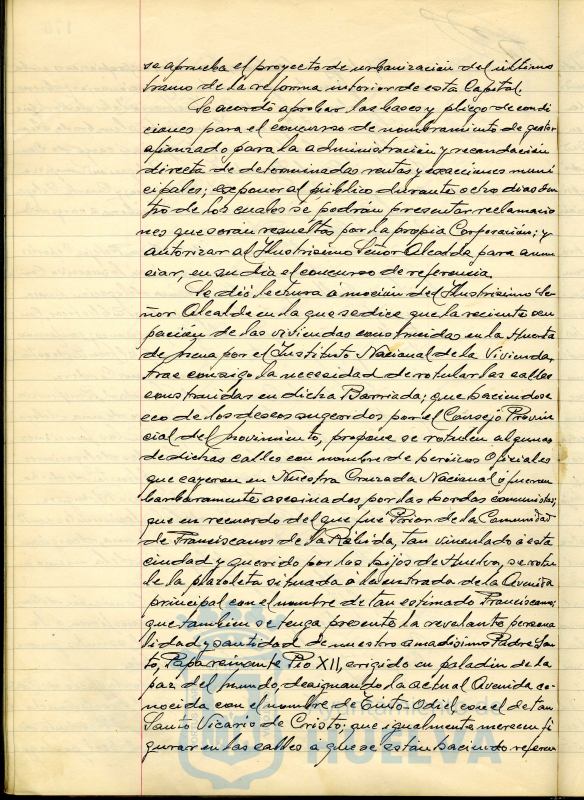 se aprueba el proyecto de urbanización del último
tramo de la reforma interior de esta Capital.
Se acordó aprobar las bases y pliego de condi
ciones para el concurso de nombramiento de gestor
afianzado para la administración y recaudación
directa de determinadas rentas y exacciones muni
cipales; exponer al público durante ocho dias den
tro de los cuales se podrán presentar reclamacio
nes que serán resueltas por la propia Corporación; y
autorizar al Ilustrisimo Señor Alcalde para anun
ciar, en su dia el concurso de referencia.
Se dió lectura á moción del Ilustrisimo Se
ñor Alcalde en la que se dice que la reciente ocu
pación de las viviendas construidas en la Huerta
de Mena por el Instituto Nacional de la Vivienda,
trae consigo la necesidad de rotular las calles
construidas en dicha Barriada; que haciendose
eco de los deseos sugeridos por el Consejo Provin
cial del Movimiento, propone se rotulen algunas
de dichas calles con nombre de heróicos Oficiales
que cayeron en Nuestra Cruzada Nacional ó fueron
barbaramente asesinados por las hordas comunistas;
que en recuerdo del que fué Prior de la Comunidad
de Franciscanos de la Rábida, tan vinculado á esta
ciudad y querido por los hijos de Huelva, se rotu
le la plazoleta situada á la entrada de la Avenida
principal con el nombre de tan estimado Franciscano;
que tambien se tenga presente la relevante persona
lidad y santidad de nuestro amadisimo Padre San
to, Papa reinante Pio XII, erigido en paladin de la
paz del Mundo, designando la actual Avenida co
nocida con el nombre de Tinto-Odiel, con el de tan
Santo Vicario de Cristo; que igualmente merecen fi
gurar en las calles a que se están haciendo referen
HUELVA